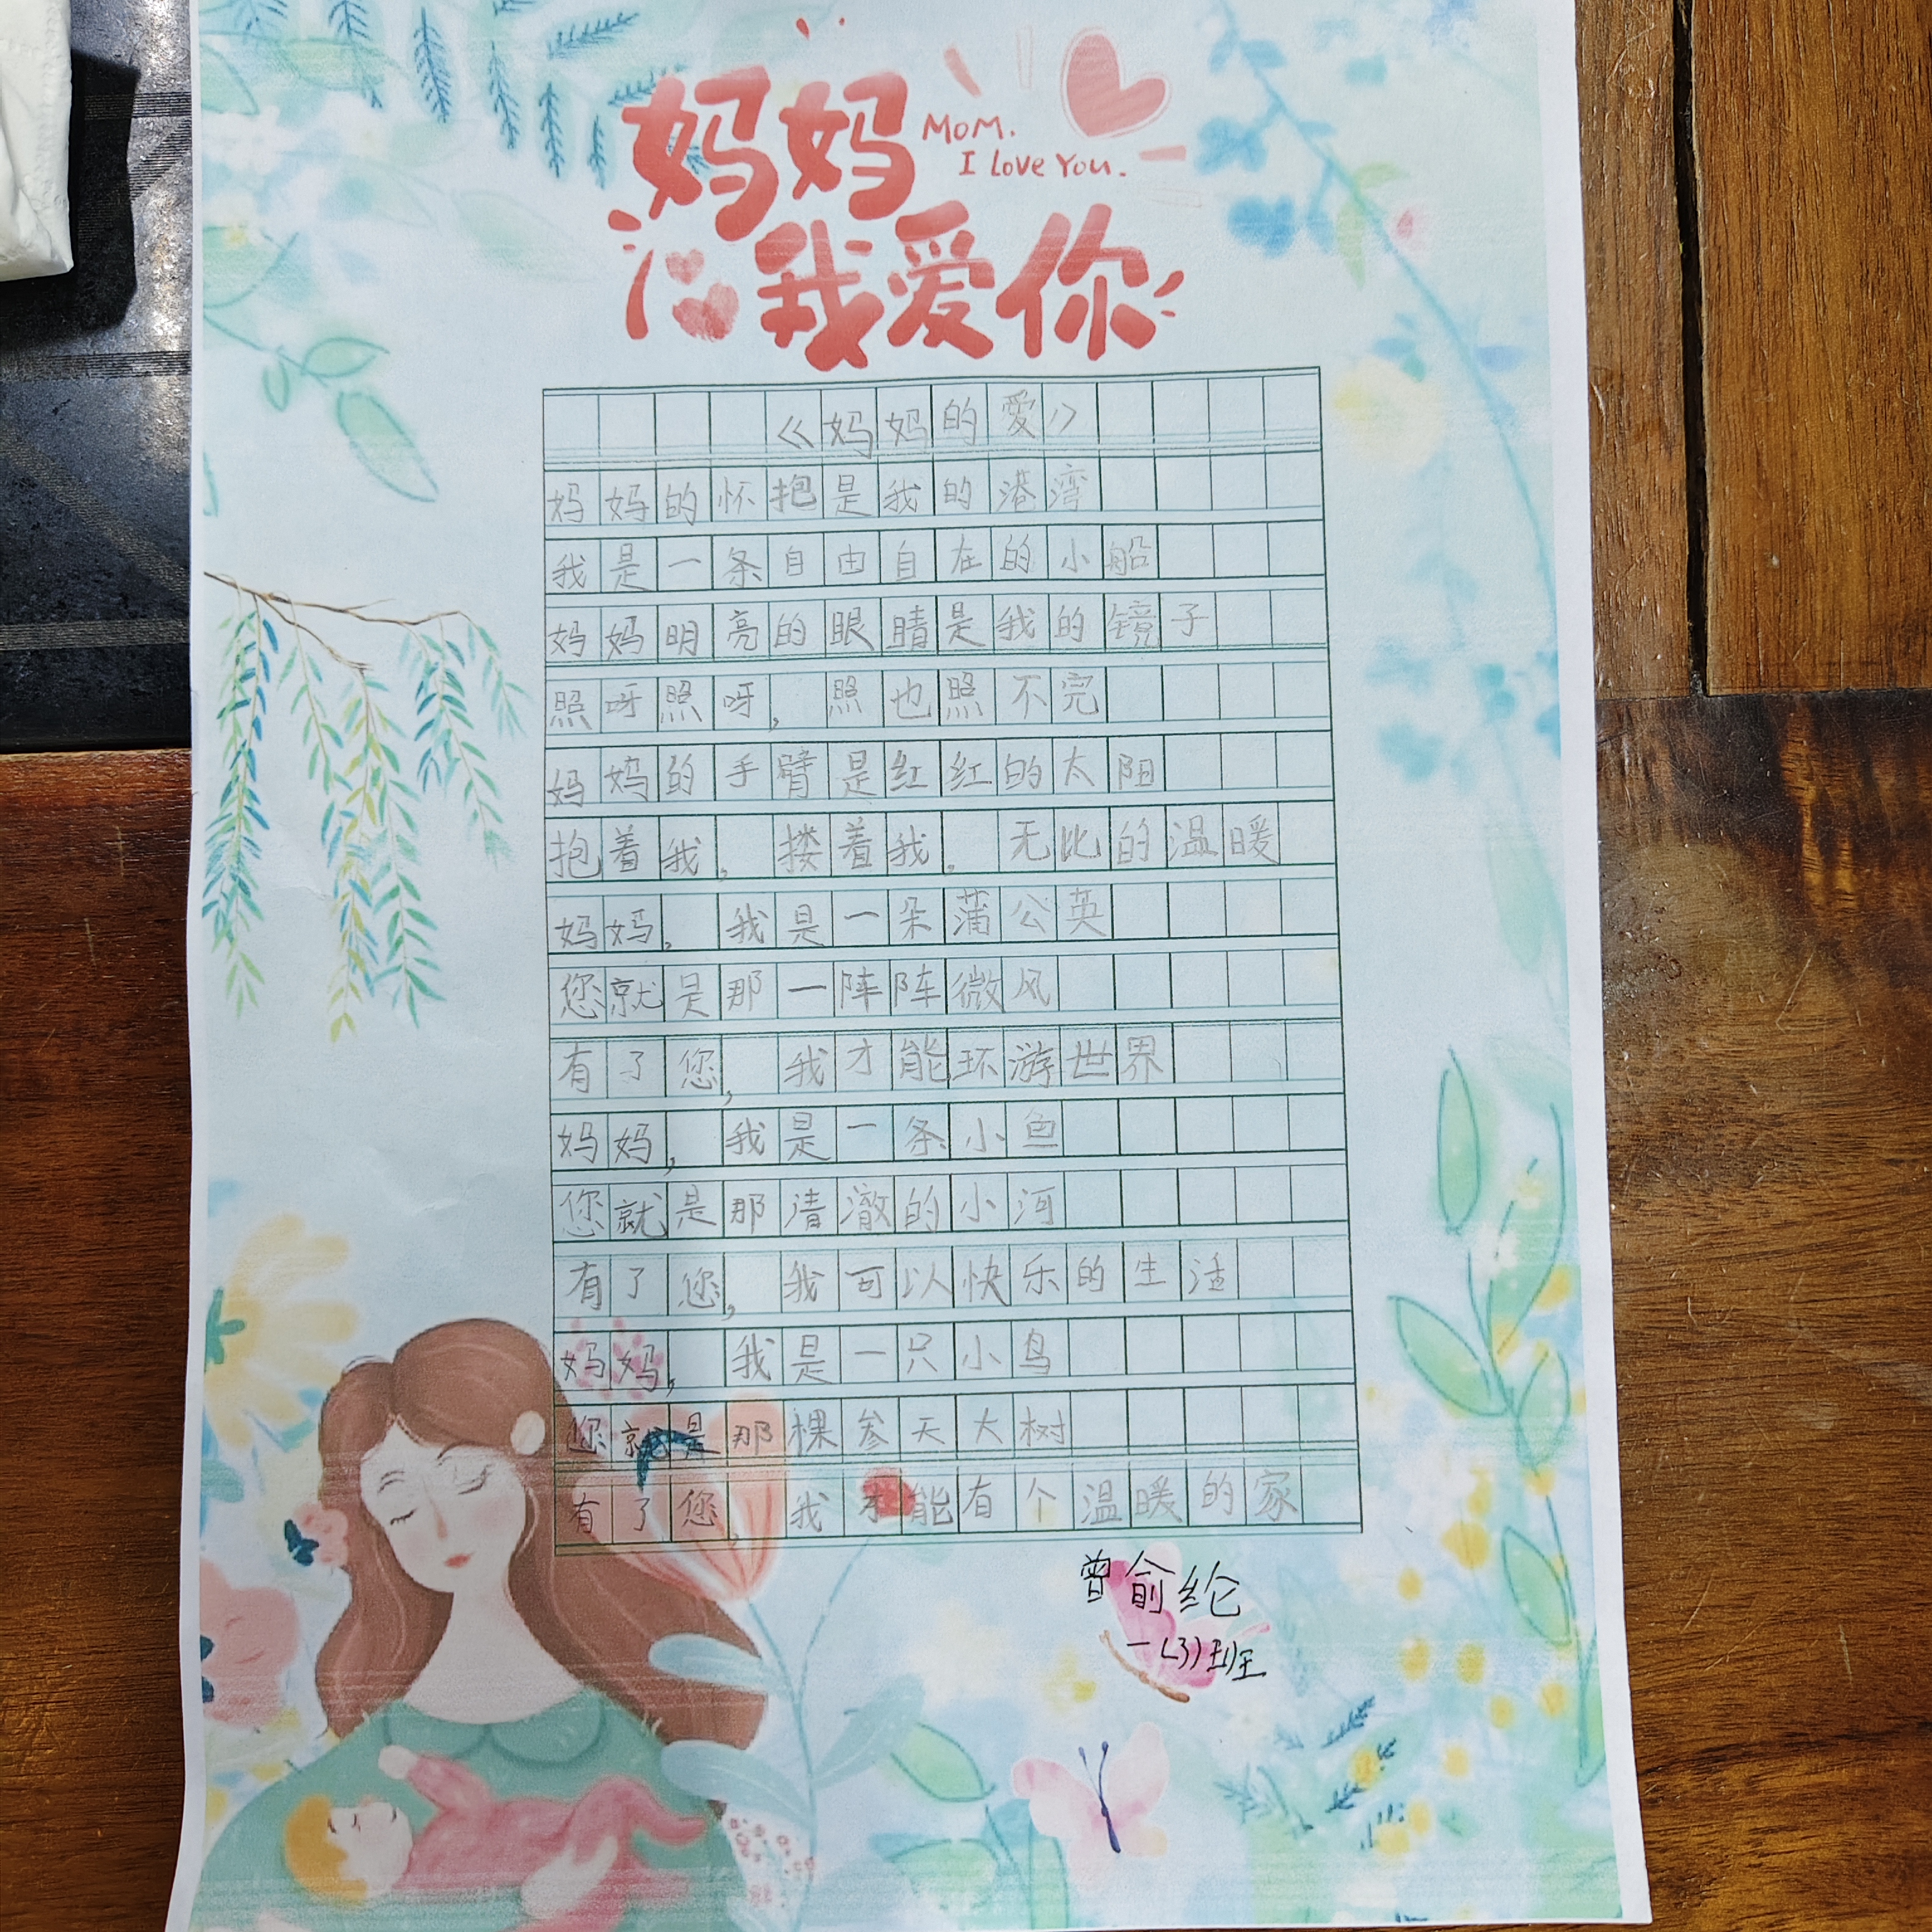 妈妈
Mom.
I Love You.
我爱你
《妈妈的爱》
妈妈的怀抱是我的港湾
我是一条自由自在的小船
妈妈明亮的眼睛是我的镜子
照呀照呀，照也照不完
妈妈的手臂是红红的太阳
抱着我，搂着我。无比的温暖
妈妈，我是一朵蒲公英
您就是那一阵阵微风
有了您，我才能环游世界
妈妈，我是一条小鱼
您就是那清澈的小河
有了您，我可以快乐的生活
妈妈，我是一只小鸟
您就是那棵参天大树
有了您，我才能有个温暖的家
曾俞纶
一(3)班